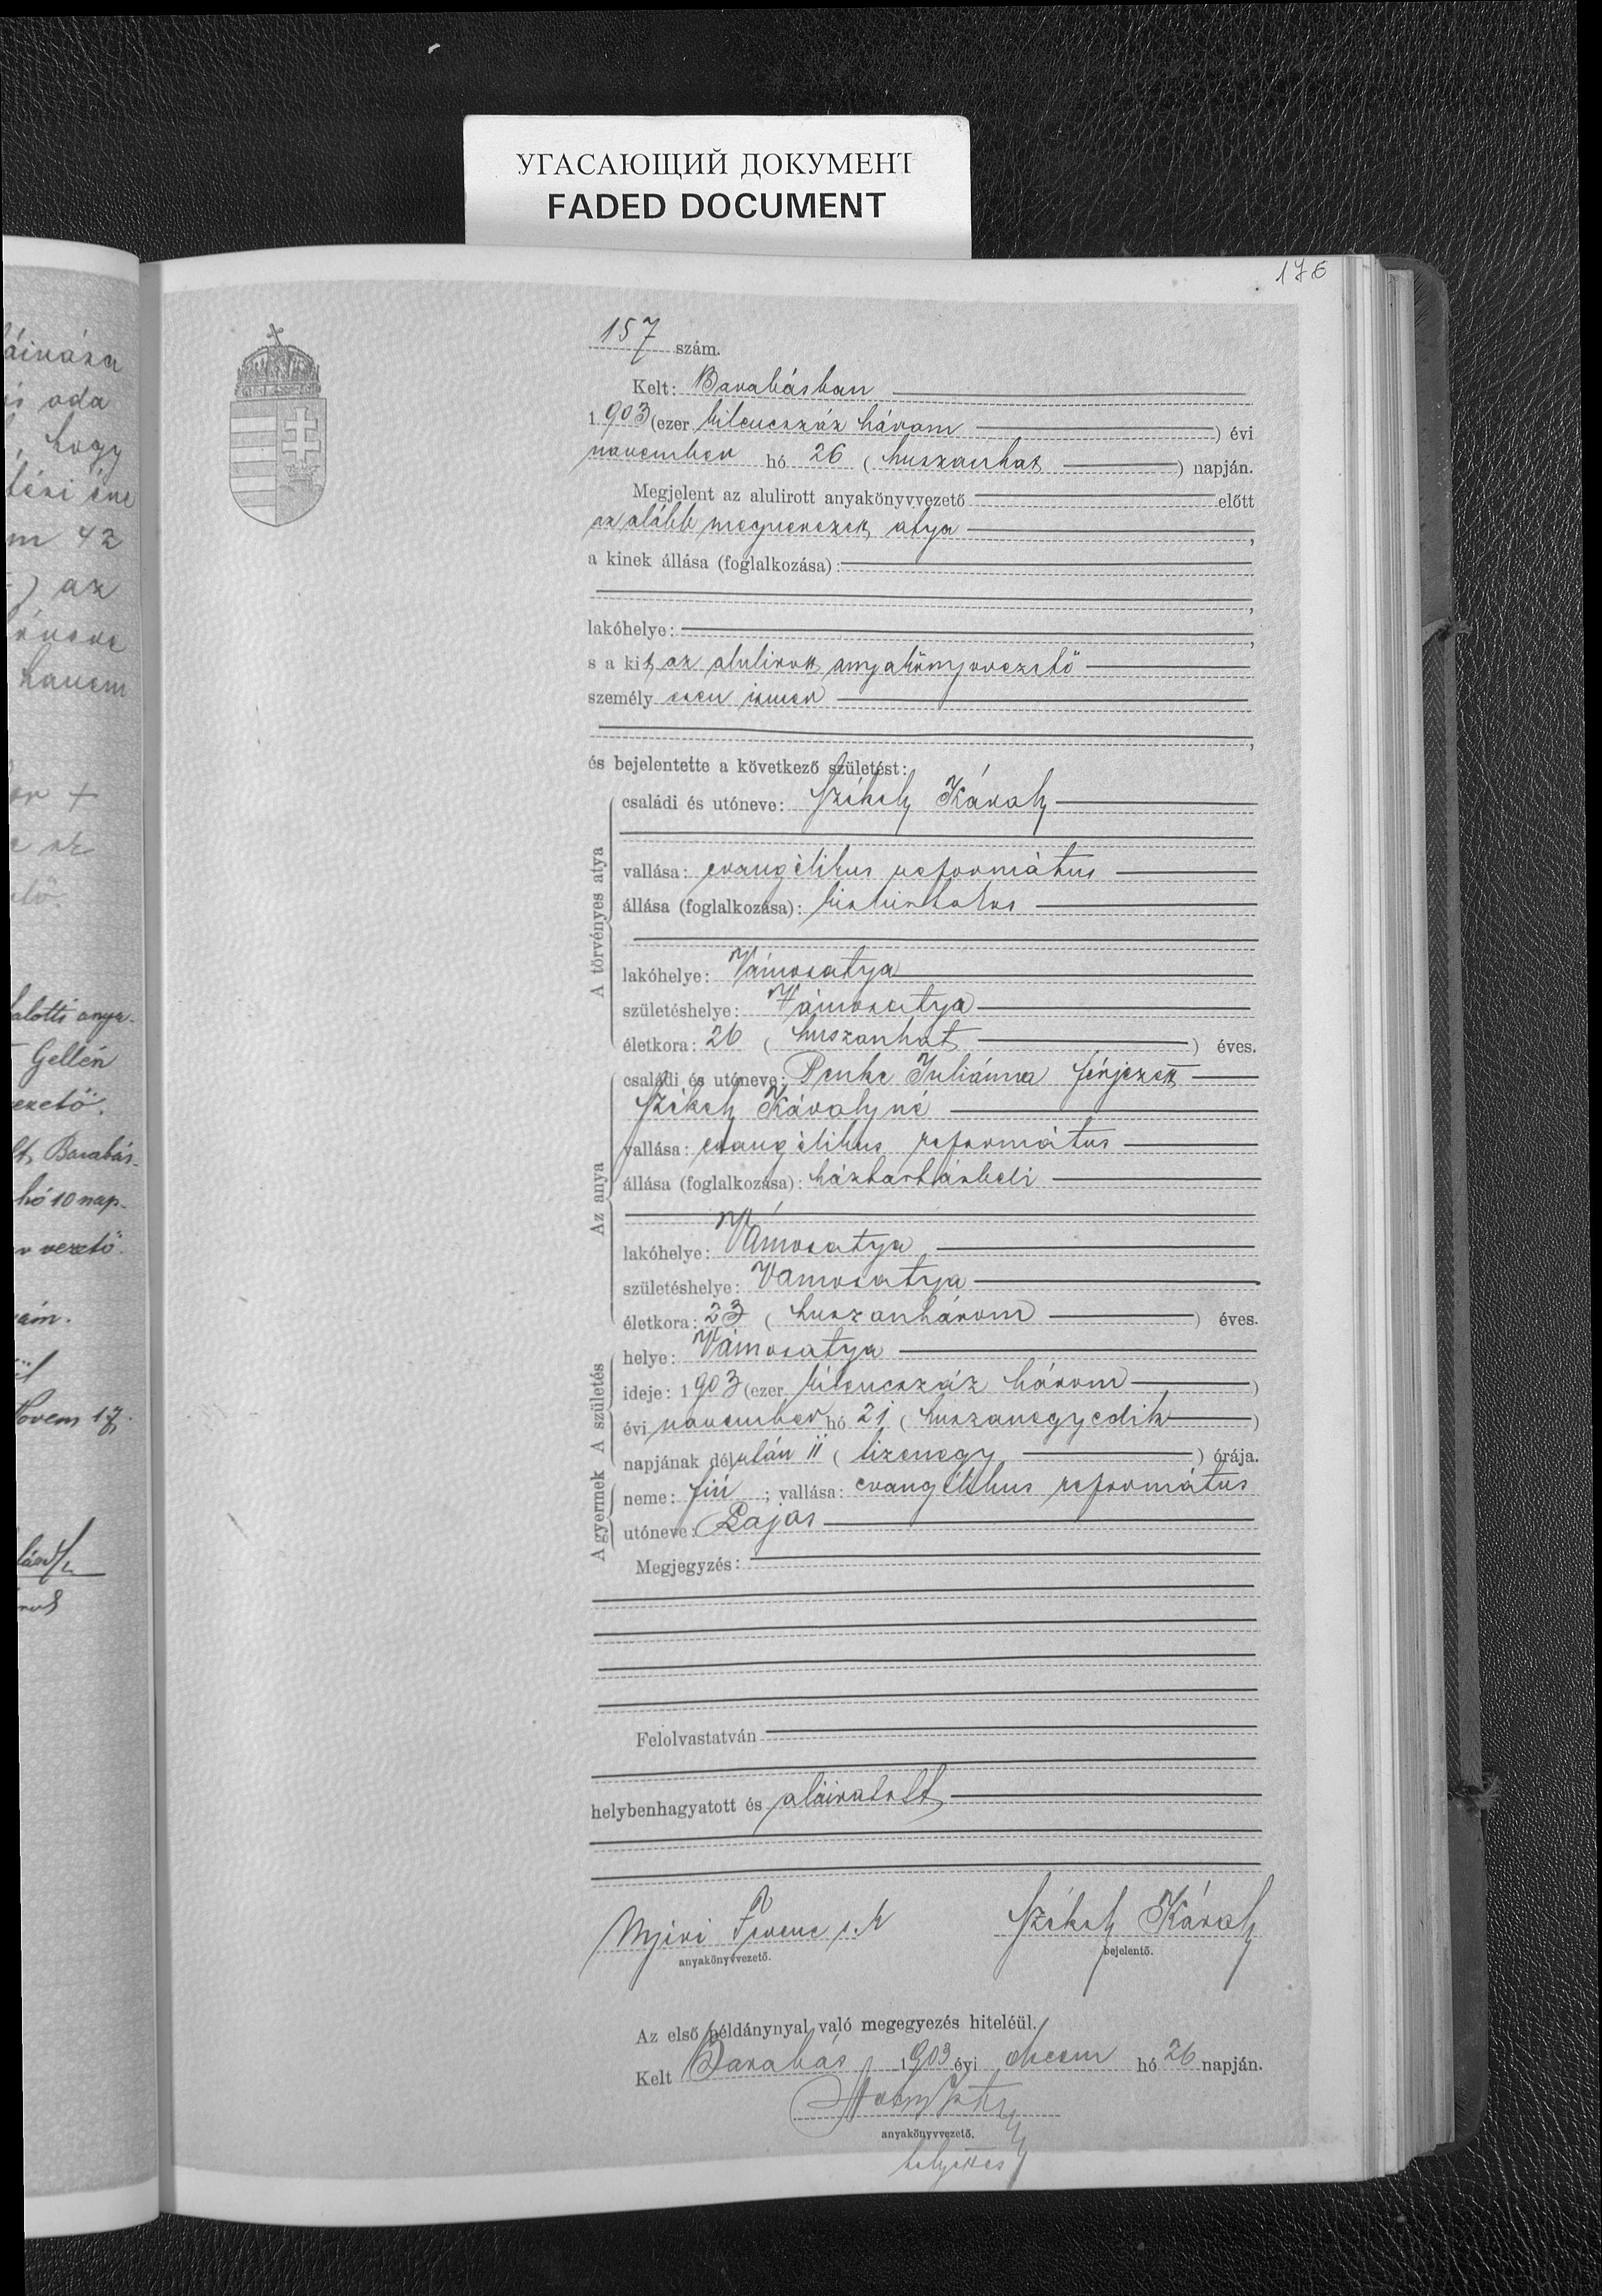 УГАСАЮЩИЙ ДОКУМЕНТ
FADED DOCUMENT
176
157 szám.
Kelt: Barabásban
1903 (ezer kilencszáz három) évi
november hó 26 (huszonhat) napján.
Megjelent az alulirott anyakönyvvezető előtt
az alább megnevezett atya,
a kinek állása (foglalkozása):
,
lakóhelye: ,
s a kit az alulirott anyakönyvvezető
személyesen ismer
,
és bejelentette a következő születést:
A törvényes atya
családi és utóneve: Székely Károly
vallása: evangélikus református
állása (foglalkozása): kisbirtokos
lakóhelye: Vámosatya
születéshelye: Vámosatya
életkora: 26 (huszonhat) éves.
Az anya
családi és utóneve: Penke Juliánna férjezett
Székely Károlyné
vallása: evangélikus református
állása (foglalkozása): háztartásbeli
lakóhelye: Vámosatya
születéshelye: Vámosatya
életkora: 23 (huszonhárom) éves.
A születés
helye: Vámosatya
ideje: 1903 (ezer kilencszáz három)
évi november hó 21 (huszonegyedik)
napjának délután 11 (tizenegy) órája.
A gyermek
neme: fiú; vallása: evangélikus református
utóneve: Lajos
Megjegyzés:
Felolvastatván
helybenhagyatott és aláiratott
Nyiri Ferenc s.k Székely Károly
anyakönyvvezető. bejelentő.
Az első példánynyal való megegyezés hiteléül.
Kelt Barabás 1903 évi decem hó 26 napján.
anyakönyvvezető.
helyettes
áirása
és oda
, hogy
m 42
) az
hanem
or +
alotti anya-
Gellén
vezető.
lt Barabás-
hó 10 nap-
vezető.
Novem 17.